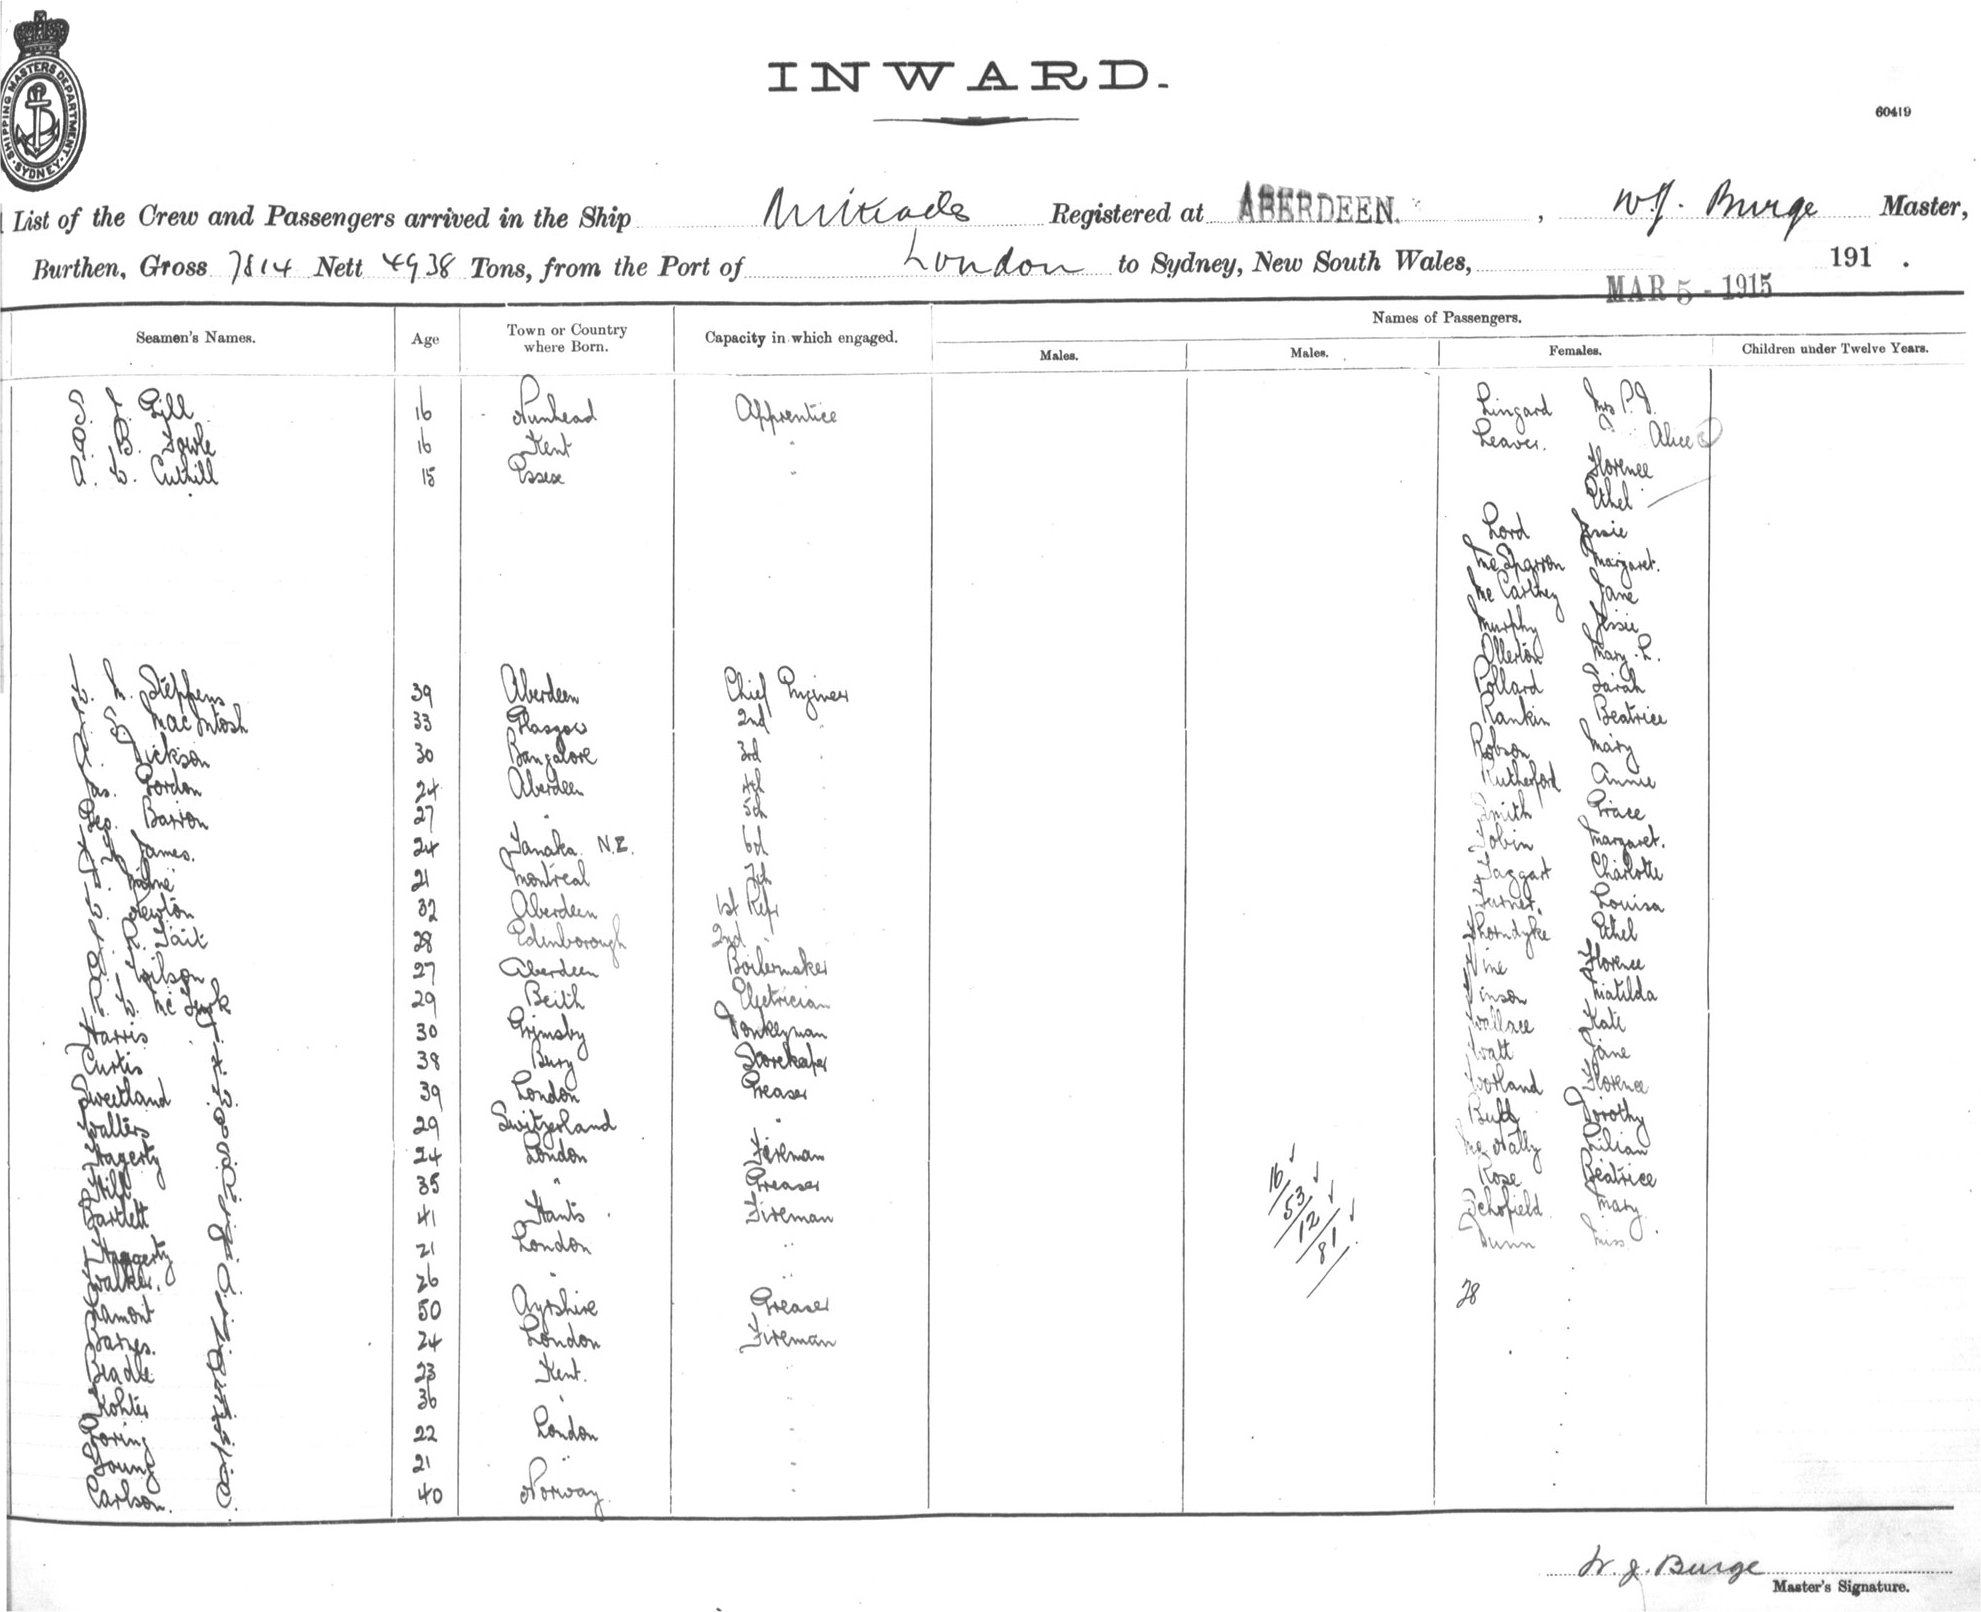 SHIPPING MASTERS DEPARTMENT · SYDNEY ·
INWARD.
60419
List of the Crew and Passengers arrived in the Ship Miltiades Registered at ABERDEEN. , W.J. Burge Master,
Burthen, Gross 7814 Nett 4938 Tons, from the Port of London to Sydney, New South Wales, 191 .
MAR 5 - 1915
Seamen's Names. Age Town or Country where Born. Capacity in which engaged. Names of Passengers.
Males. Males. Females. Children under Twelve Years.
S. J. Gill 16 Nunhead Apprentice Lingard Mrs P.J.
B. Fowle 16 Kent " Leaver. Alice
A. W. Cuthill 15 Essex " Florence
Ethel
Lord Jessie
McSparron Margaret.
McCartney Jane
Murphy Jessie
Ollerton Mary. L.
M. Stephens 39 Aberdeen Chief Engineer Pollard Sarah
MacIntosh 33 Glasgow 2nd " Rankin Beatrice
Dickson 30 Bangalore 3rd " Robson Mary
Jas. Gordon 24 Aberdeen 4th Rutherford Annie
Geo. Barron 27 " 5th Smith Grace
James. 24 Tanaka N.Z. 6th Tobin Margaret.
Milne 21 Montreal 7th Taggart Charlotte
Newton 32 Aberdeen 1st Refr Turner. Louisa
R. Tait 28 Edinborough 2nd " Thorndyke Ethel
Wilson 27 Aberdeen Boilermaker Vine Florence
W. 29 Beith Electrician Vinson Matilda
Harris 30 Grimsby Donkeyman Wallace Kate
Curtis 38 Bury Storekeeper Watt Jane
Sweetland 39 London Greaser Worland Florence
Walters 29 Switzerland " Dorothy
Hagerty 24 London Fireman McNally Lilian
Hill 35 " Greaser Rose Beatrice
Bartlett 41 Hants Fireman Schofield Mary
Haggerty 21 London " Dunn Miss
Walker. 26 " "
Lamont 50 Ayrshire Greaser
Barnes. 24 London Fireman
Beadle 23 Kent. "
Kohler 36 " "
Goring 22 London "
Young 21 " "
Carlson. 40 Norway "
16
53
12
81
28
W. J. Burge
Master's Signature.